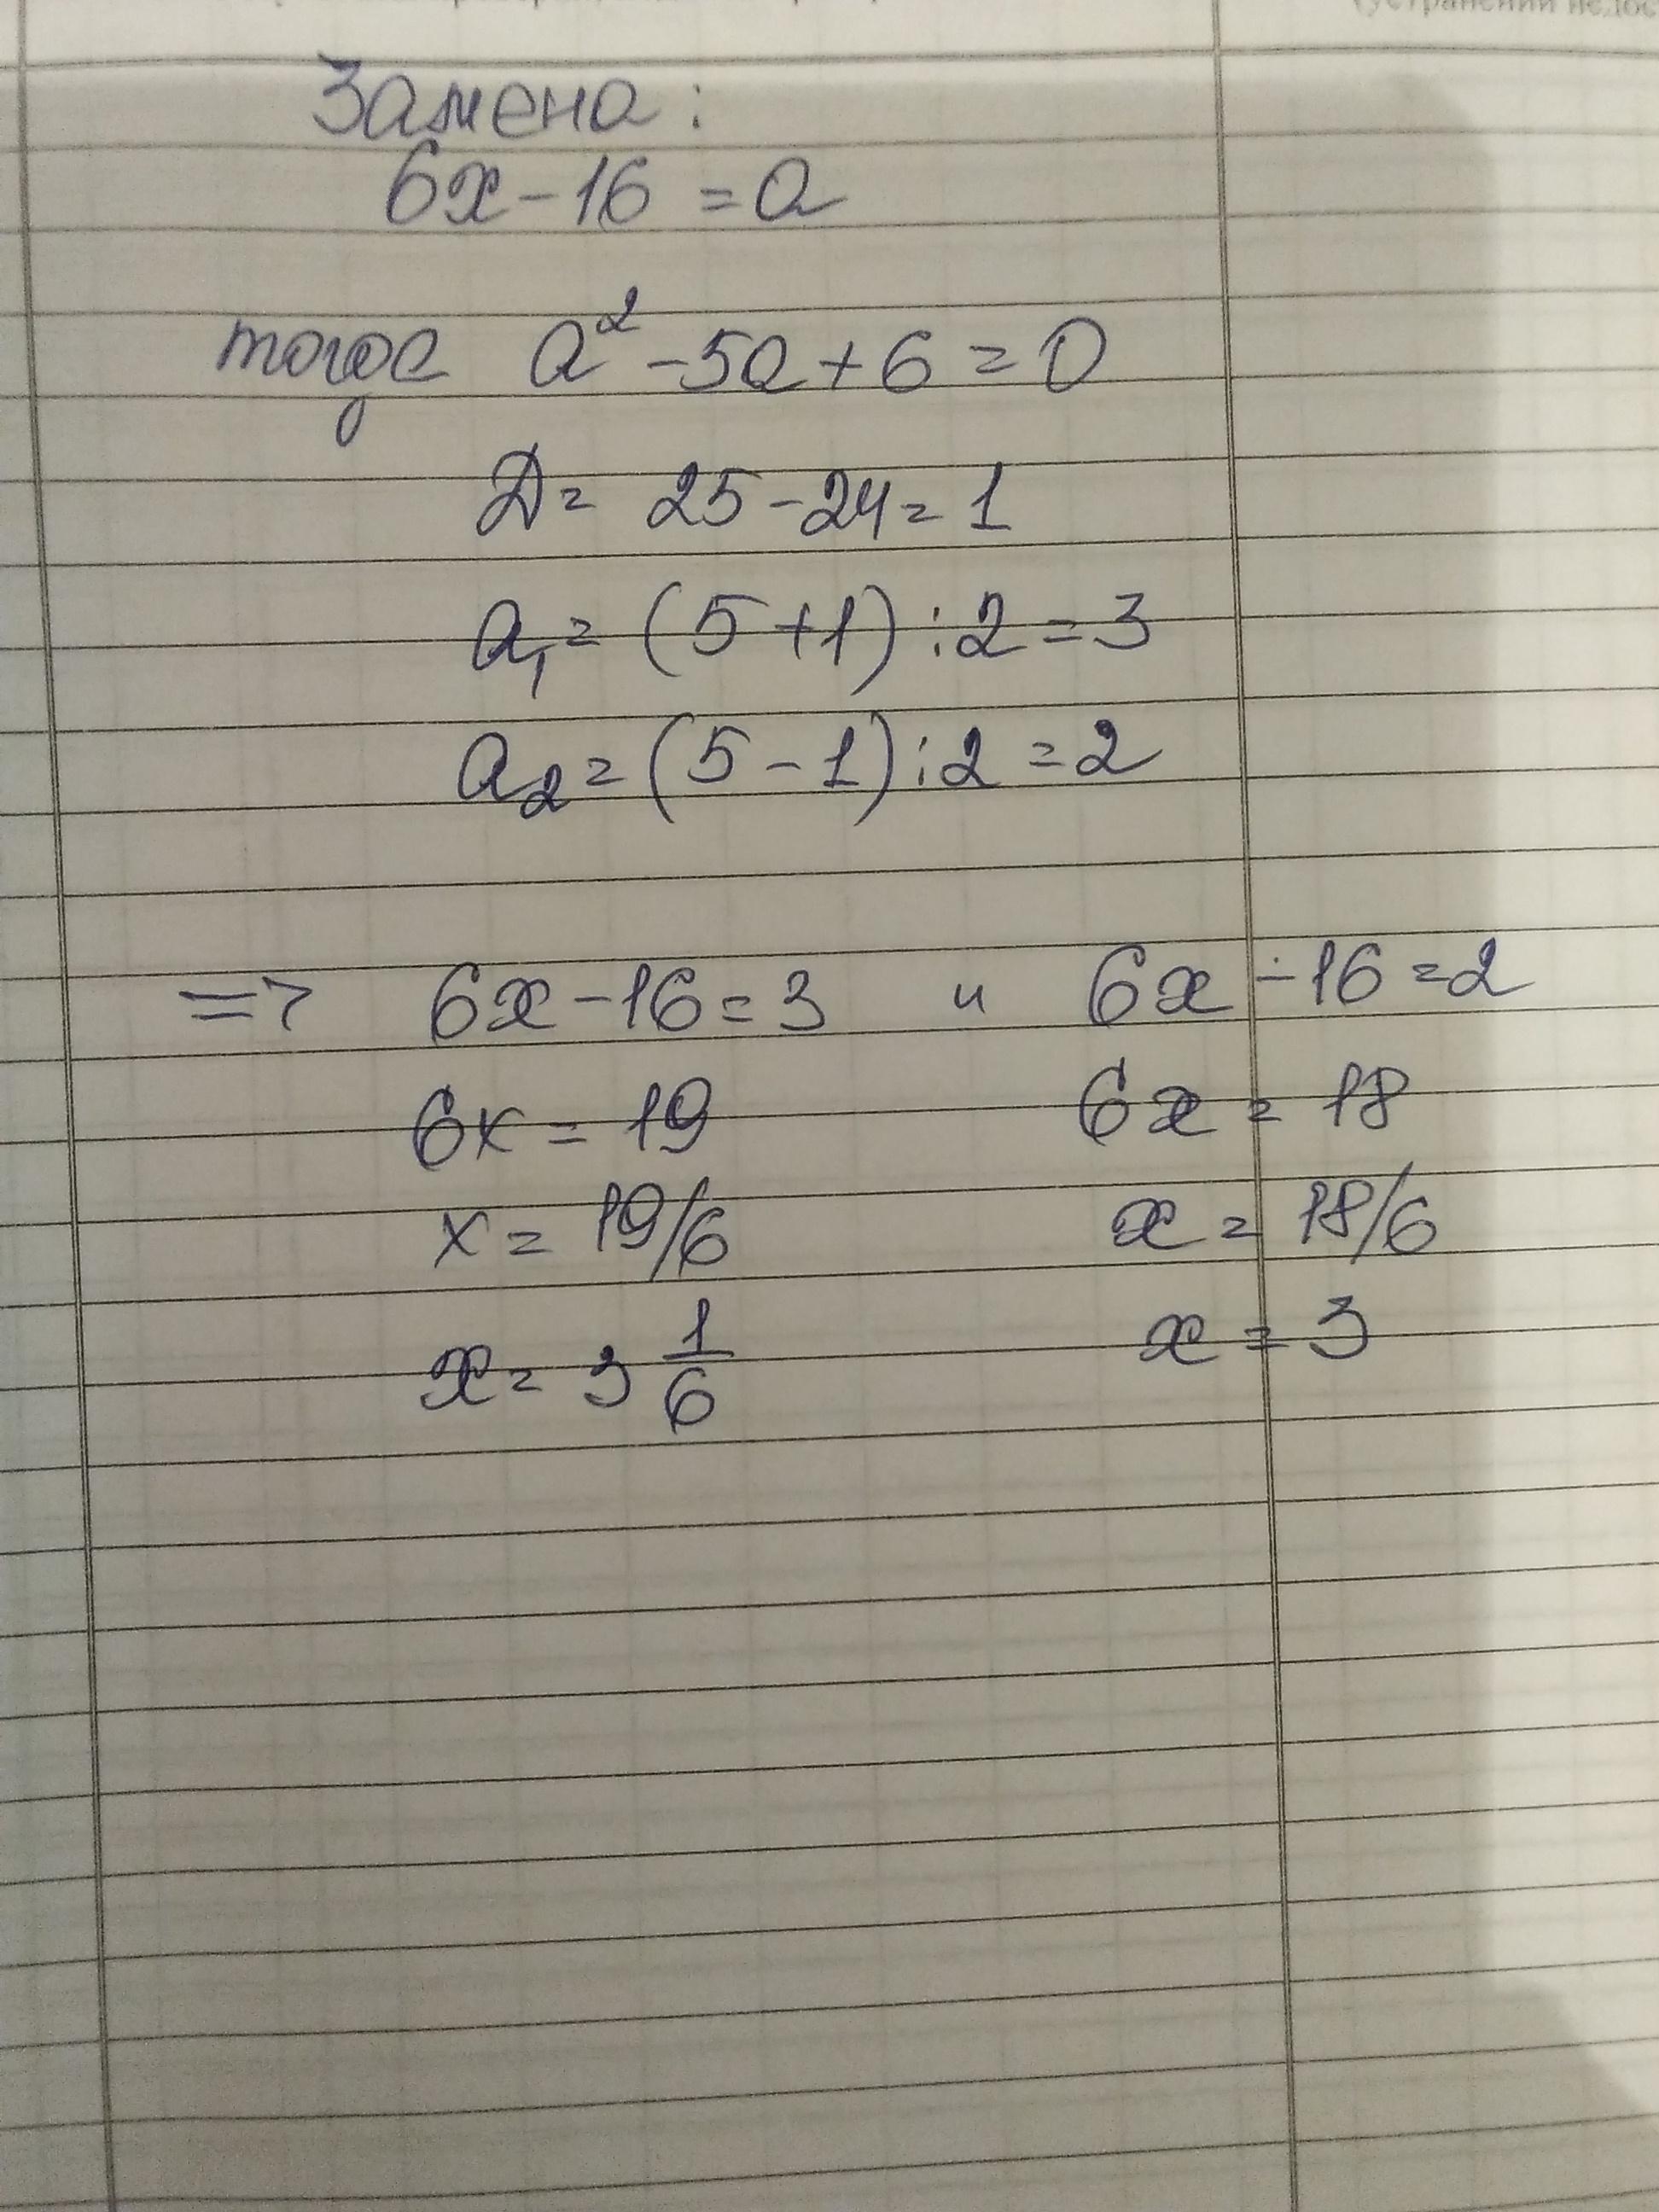 (устранении недос
Замена:
6x - 16 = a
тогда a² - 5a + 6 = 0
Д = 25 - 24 = 1
a₁ = (5 + 1) : 2 = 3
a₂ = (5 - 1) : 2 = 2
=> 6x - 16 = 3 и 6x - 16 = 2
6x = 19 6x = 18
x = 19/6 x = 18/6
x = 3 1/6 x = 3